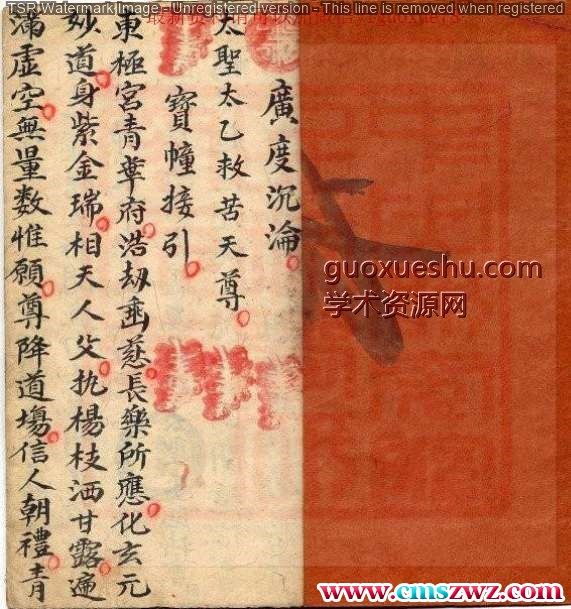 TSR Watermark Image - Unregistered version - This line is removed when registered
廣度沉淪
太聖太乙救苦天尊
寶幢接引
東極宮青華府浩刼垂慈長樂所應化玄元
玅道身紫金瑞相天人父执楊枝洒甘露遍
滿虛空無量数惟願尊降道塲信人朝禮青
guoxueshu.com
学术资源网
www.cmszwz.com